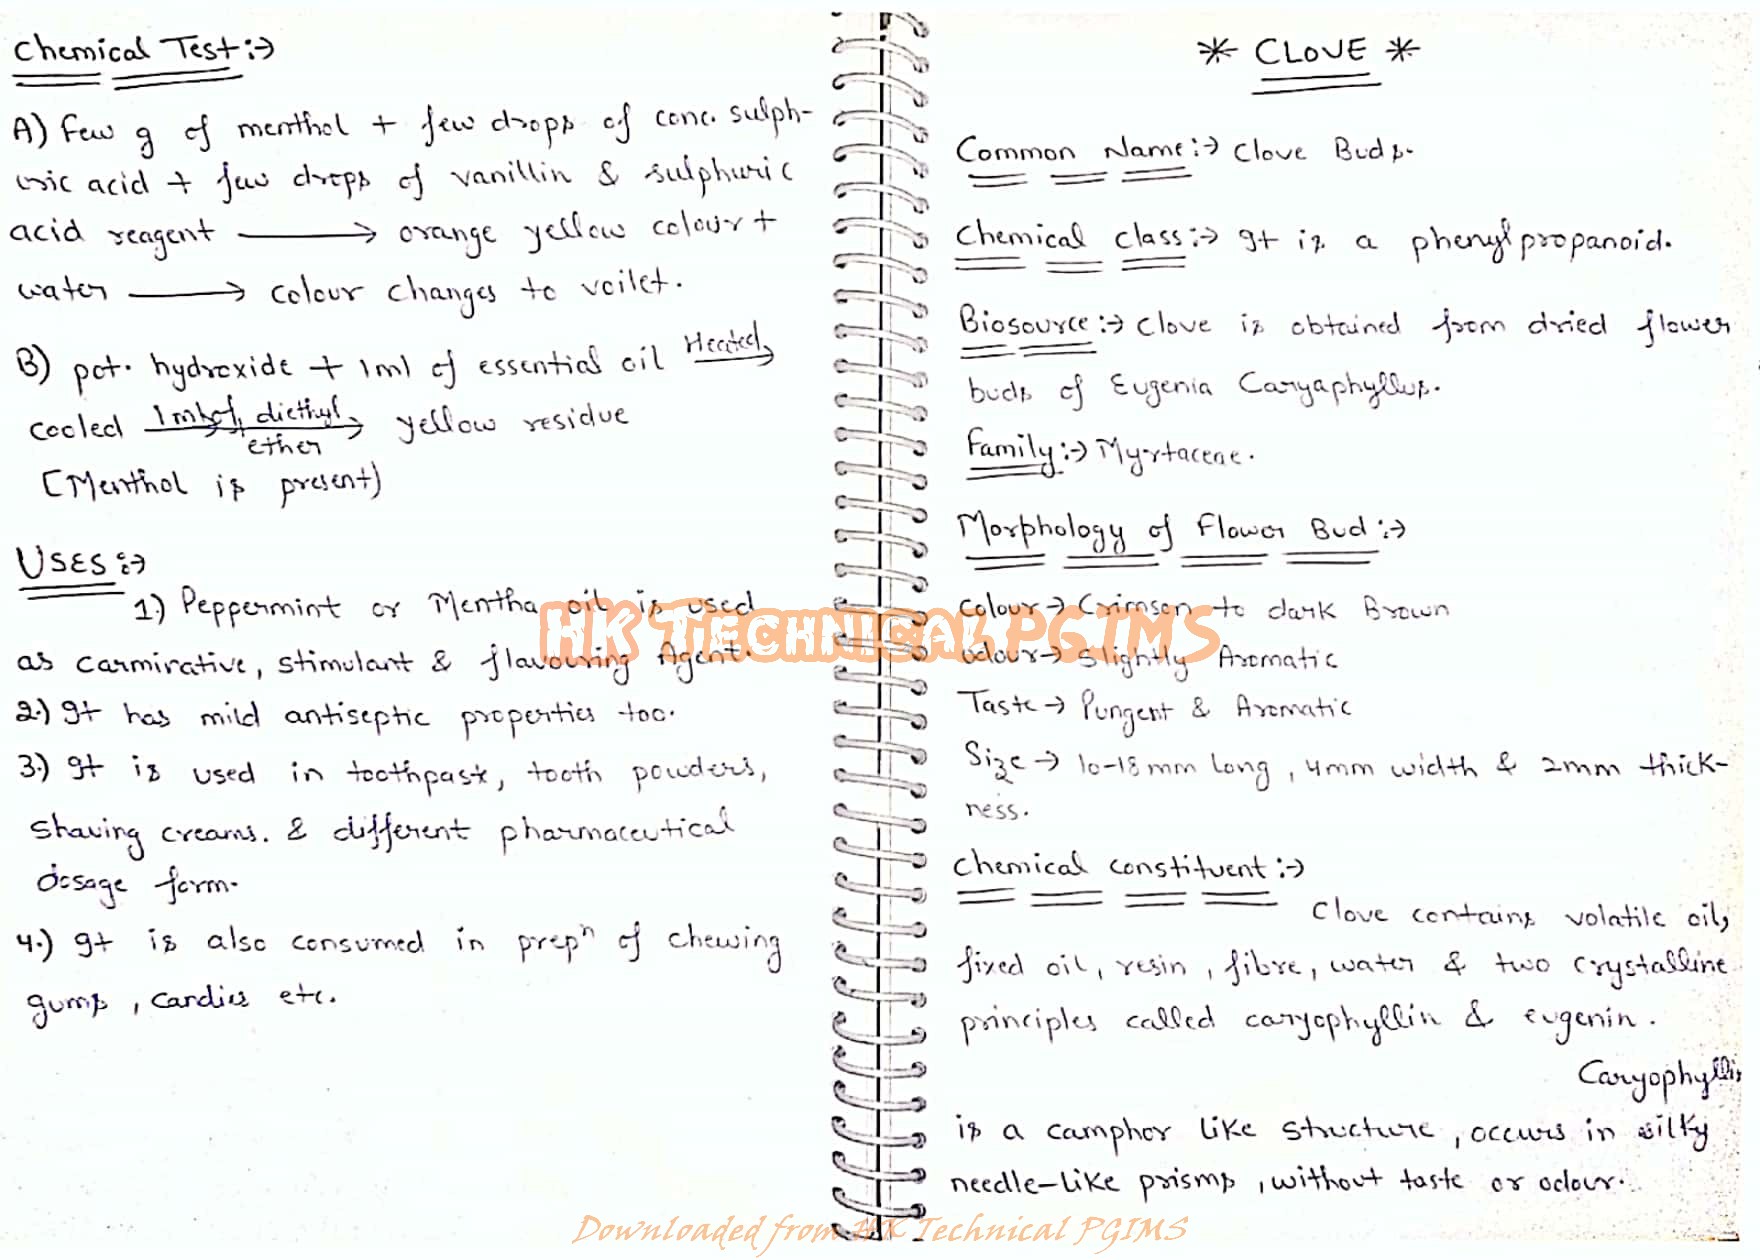 Chemical Test :→
A) Few g of menthol + few drops of conc. sulph-
uric acid + few drops of vanillin & sulphuric
acid reagent ⟶ orange yellow colour +
water ⟶ colour changes to voilet.
B) pot. hydroxide + 1ml of essential oil Heated→
cooled 1ml of diethyl ether → yellow residue
[Menthol is present)
USES :→
1.) Peppermint or Mentha oil is used
as carmirative, stimulant & flavouring Agent.
2.) It has mild antiseptic properties too.
3.) It is used in toothpaste, tooth powders,
shaving creams. & different pharmaceutical
dosage form.
4.) It is also consumed in prepⁿ of chewing
gums, candies etc.
* CLOVE *
Common Name :→ Clove Buds.
Chemical class :→ It is a phenylpropanoid.
Biosource :→ Clove is obtained from dried flower
buds of Eugenia Caryaphyllus.
Family :→ Myrtaceae.
Morphology of Flower Bud :→
Colour → Crimson to dark Brown
Odour → Slightly Aromatic
Taste → Pungent & Aromatic
Size → 10-18 mm long, 4mm width & 2mm thick-
ness.
Chemical constituent :→
Clove contains volatile oil,
fixed oil, resin, fibre, water & two crystalline
principles called caryophyllin & eugenin.
Caryophyllin
is a camphor like structure, occurs in silky
needle-like prisms, without taste or odour.
HK TECHNICAL PGIMS
Downloaded from HK Technical PGIMS